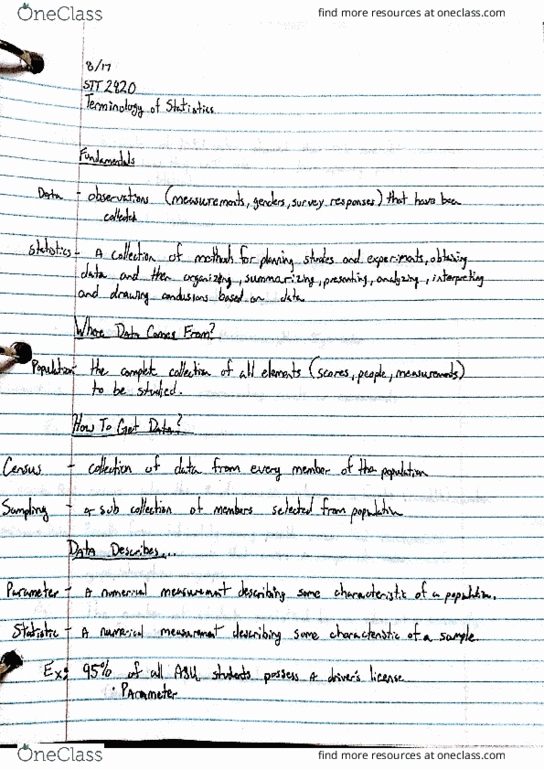 OneClass
find more resources at oneclass.com
8/17
STT 2420
Terminology of Statistics
Fundamentals
Data - observations (measurements, genders, survey responses) that have been
collected
Statistics - A collection of methods for planning studies and experiments, obtaining
data and then organizing, summarizing, presenting, analyzing, interpreting
and drawing conclusions based on data
Where Data Comes From?
Population - the complete collection of all elements (scores, people, measurements)
to be studied.
How To Get Data?
Census - collection of data from every member of the population
Sampling - a sub collection of members selected from population
Data Describes...
Parameter - A numerical measurement describing some characteristic of a population.
Statistic - A numerical measurement describing some characteristic of a sample.
Ex: 95% of all ASU students possess a driver's license
· Parameter
OneClass
find more resources at oneclass.com